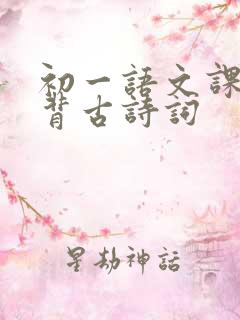 初一語文課
背古詩詞
星劫神話